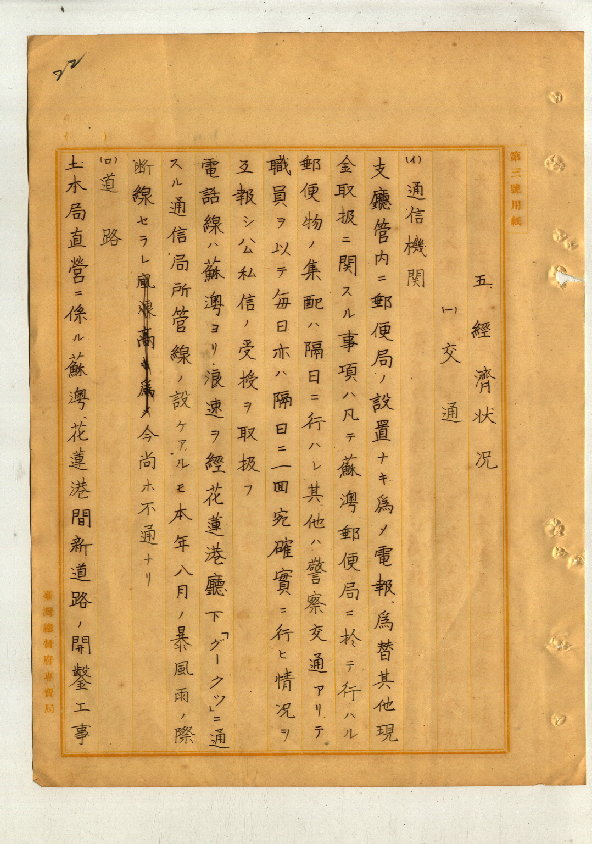 22
第三號用紙
五 經濟状况
(一) 交通
(イ) 通信機関
支廳管内ニ郵便局ノ設置ナキ爲メ電報、爲替其他現
金取扱ニ関スル事項ハ凡テ蘇澳郵便局ニ於テ行ハル
郵便物ノ集配ハ隔日ニ行ハレ其他ハ警察交通アリテ
職員ヲ以テ毎日亦ハ隔日ニ一回宛確實ニ行ヒ情况ヲ
互報シ公私信ノ受授ヲ取扱フ
電話線ハ蘇澳ヨリ浪速ヲ經花蓮港廳下「グークツ」ニ通
スル通信局所管線ノ設ケアルモ本年八月ノ暴風雨ノ際
断線セラレ風浪高キ爲メ今尚ホ不通ナリ
(ロ) 道路
土木局直營ニ係ル蘇澳、花蓮港間新道路ノ開鑿工事
臺灣總督府專賣局